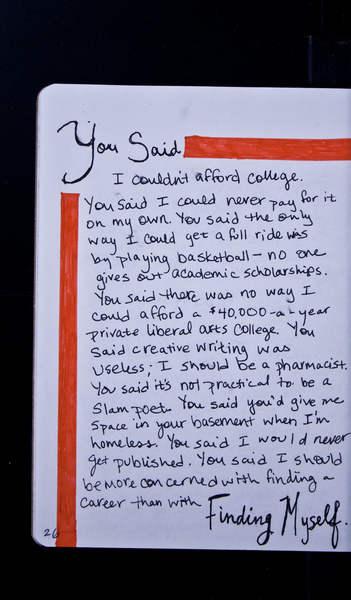 You Said
I couldn't afford college.
You said I could never pay for it
on my own. You said the only
way I could get a full ride was
by playing basketball - no one
gives out academic scholarships.
You said there was no way I
could afford a $40,000-a-year
private liberal arts college. You
said creative writing was
useless; I should be a pharmacist.
You said it's not practical to be a
slam poet. You said you'd give me
space in your basement when I'm
homeless. You said I would never
get published. You said I should
be more concerned with finding a
career than with Finding Myself.
26